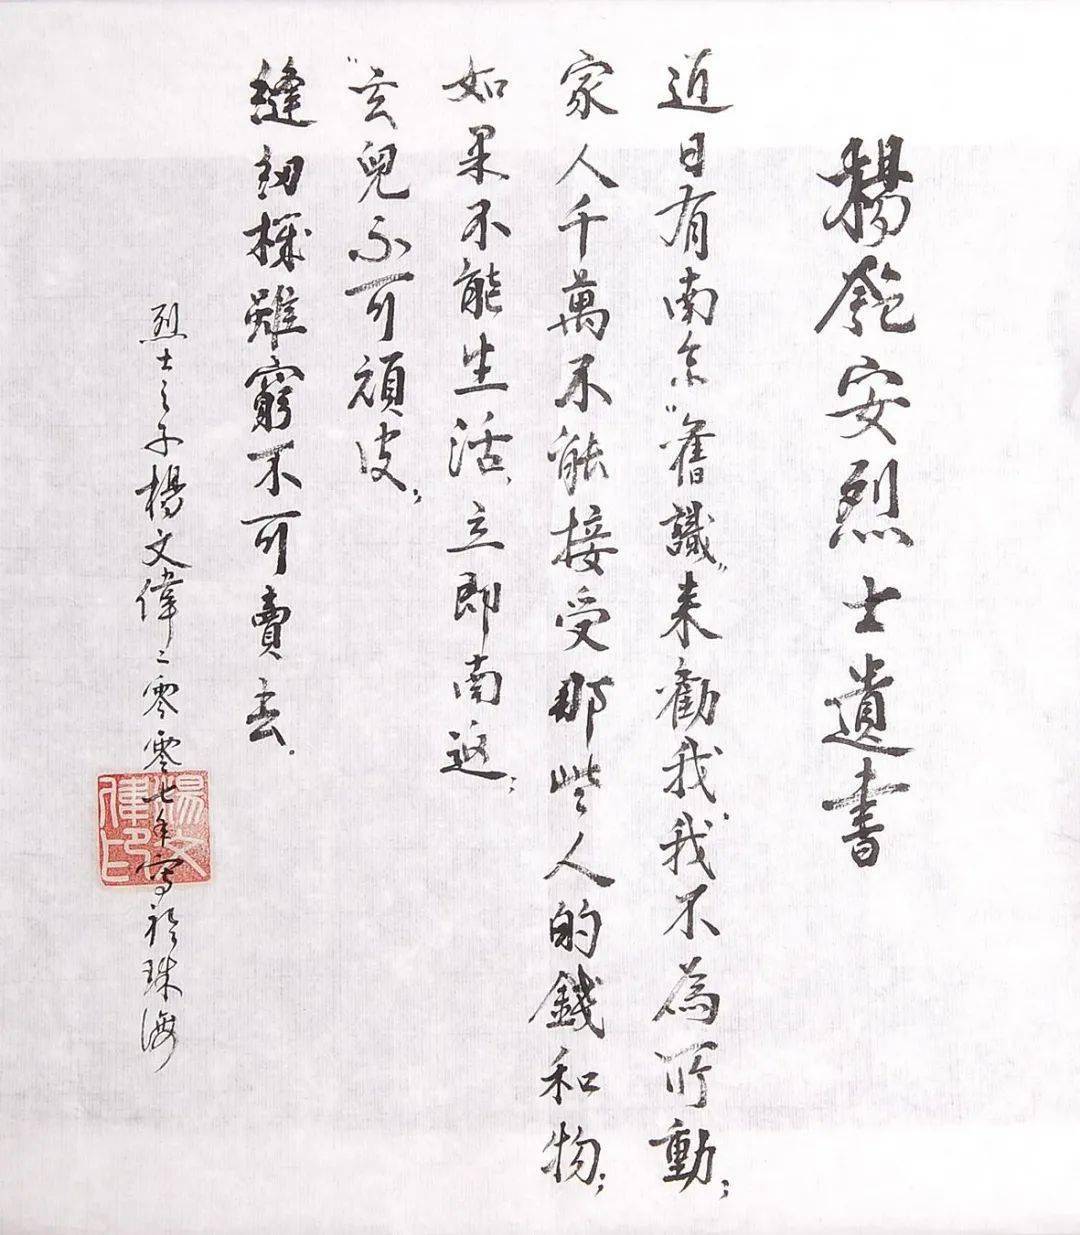 楊匏安烈士遺書
近日有南京"舊識"來勸我我不為所動；
家人千萬不能接受那些人的錢和物；
如果不能生活、立即南返；
"玄兒不可頑皮；
縫紉機雖窮不可賣去.
烈士之子楊文偉二零零七年寫於珠海
楊文偉印